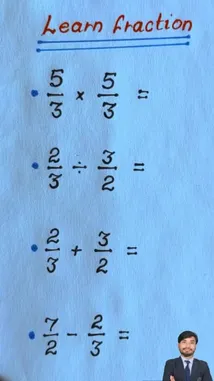 Learn fraction
• 5/3 × 5/3 =
• 2/3 ÷ 3/2 =
• 2/3 + 3/2 =
• 7/2 - 2/3 =